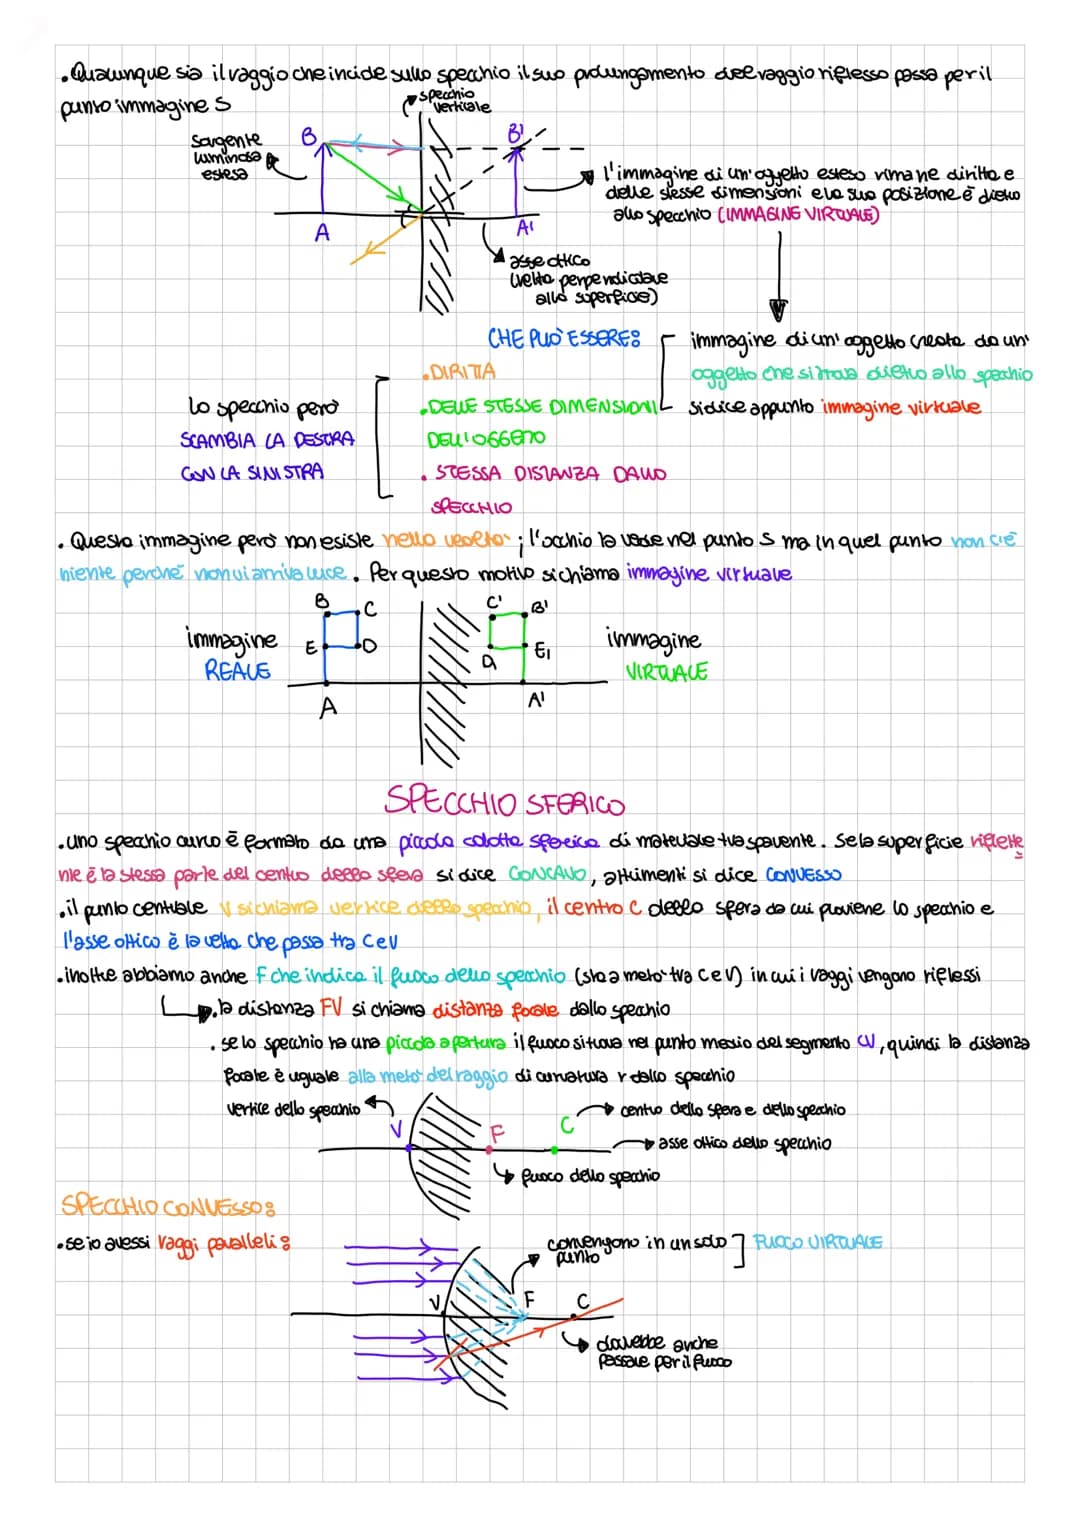 . Qualunque sia il raggio che incide sullo specchio il suo prolungamento del raggio riflesso passa per il
punto immagine S
specchio
verticale
Sorgente
luminosa
estesa
B
B'
A
A'
l'immagine di un'oggetto esteso rimane diritta e
delle stesse dimensioni e la sua posizione è dietro
allo specchio (IMMAGINE VIRTUALE)
asse ottico
(retta perpendicolare
alla superficie)
CHE PUÒ ESSERE:
immagine di un'oggetto creata da un'
oggetto che si trova dietro allo specchio
si dice appunto immagine virtuale
. DIRITTA
. DELLE STESSE DIMENSIONI
DELL'OGGETTO
. STESSA DISTANZA DALLO
SPECCHIO
Lo specchio però
SCAMBIA LA DESTRA
CON LA SINISTRA
. Questa immagine però non esiste nella realtà ; l'occhio la vede nel punto S ma in quel punto non c'è
niente perchè non vi arriva luce. Per questo motivo si chiama immagine virtuale
B
C
E
D
A
C'
B'
E'
A'
immagine
REALE
immagine
VIRTUALE
SPECCHIO SFERICO
. uno specchio curvo è formato da una piccola calotta sferica di materiale trasparente. Se la superficie riflette
nte è la stessa parte del centro della sfera si dice CONCAVO, altrimenti si dice CONVESSO
. il punto centrale V si chiama vertice dello specchio, il centro C della sfera da cui proviene lo specchio e
l'asse ottico è la retta che passa tra C e V
. inoltre abbiamo anche F che indica il fuoco dello specchio (sta a metà tra C e V) in cui i raggi vengono riflessi
. la distanza FV si chiama distanza focale dallo specchio
. se lo specchio ha una piccola apertura il fuoco si trova nel punto medio del segmento CV, quindi la distanza
focale è uguale alla metà del raggio di curvatura r dello specchio
vertice dello specchio
V
F
C
centro della sfera e dello specchio
asse ottico dello specchio
fuoco dello specchio
SPECCHIO CONVESSO:
. se io avessi raggi paralleli:
convengono in un solo
punto
FUOCO VIRTUALE
V
F
C
dovrebbe anche
passare per il fuoco